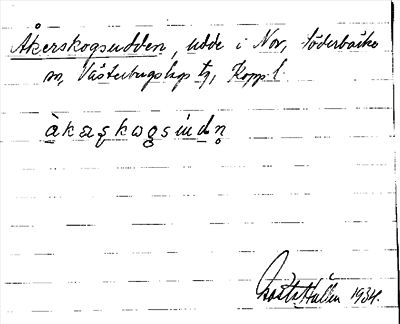 Åkerskogsudden, udde i Nor, Söderbärke
sn, Västerbergslags tg, Kopp.l.
àkaʂkωgsúdn̥
Gösta Hallén 1934.